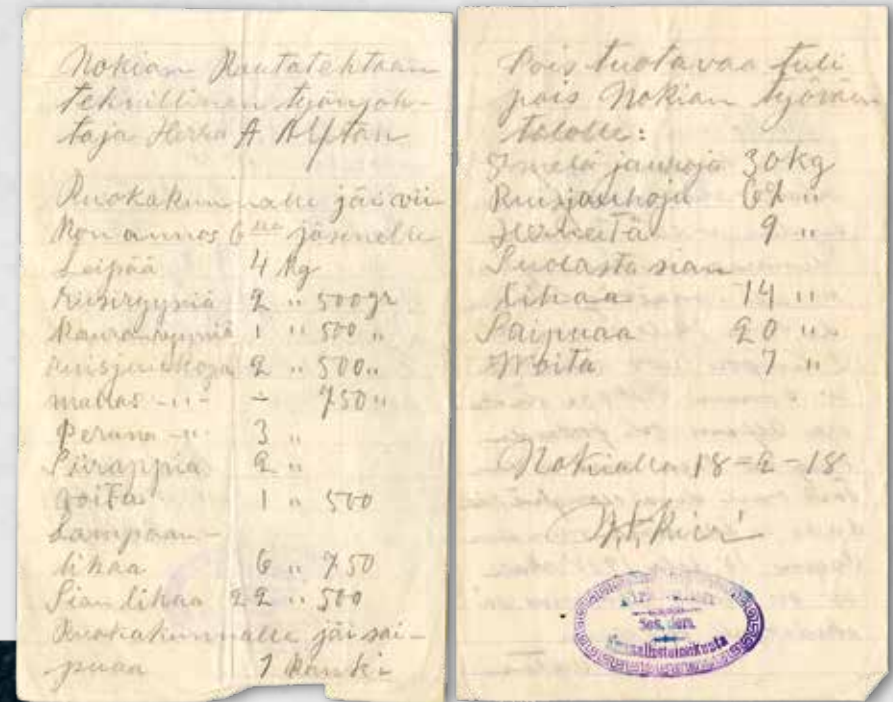 Nokian Rautatehtaan
teknillinen työnjoh-
taja Herra A
Ruokakunnalle jäi vii-
kon annos 6 jäsenelle
Leipää 4 kg
riisiryyniä 2 " 500 gr
Kauraryyniä 1 " 500 "
ruisjauhoja 2 " 500 "
mallas -"- - 750 "
Peruna -"- 3 "
Siirappia 2 "
voita 1 " 500
Lampaan-
lihaa 6 " 750
Sian lihaa 22 " 500
Ruokakunnalle jäi sai-
puaa 1 tanko
Pois tuotavaa tuli
pois Nokian työväen
talolle:
jauhoja 30 kg
Ruisjauhoja "
Herneitä 9 "
Suolasta sian
lihaa 14 "
Saipuaa 20 "
Woita 7 "
Nokialla 18-2-18
Sos. dem.